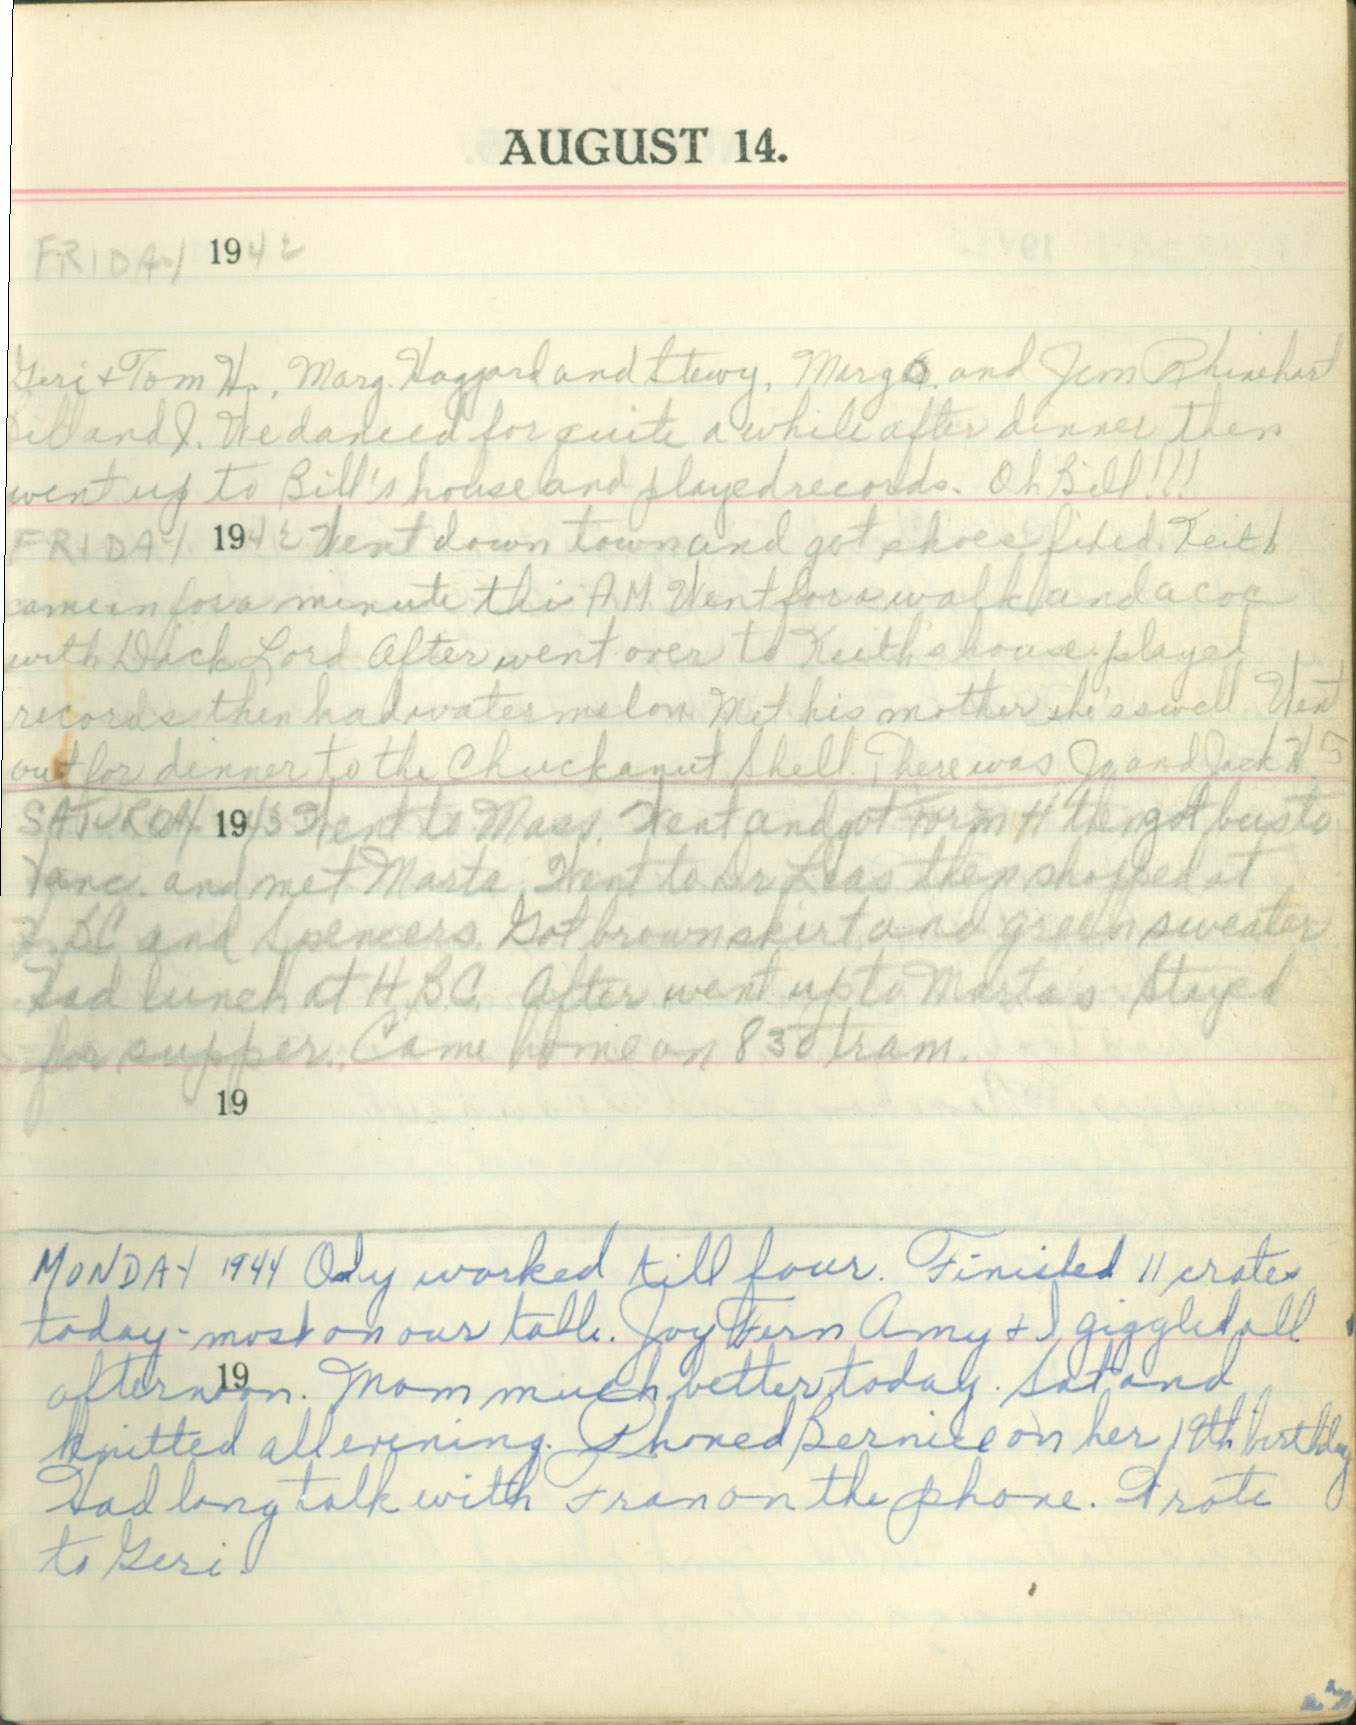 AUGUST 14.
FRIDAY 1942
Geri + Tom H., Marg. Haggard and Stewy, Marg O. and Jim Rhinehart
Bill and I. We danced for quite a while after dinner then
went up to Bill's house and played records. Oh Bill!!!
FRIDAY 1942 Went down town and got shoes fixed. Keith
came in for a minute this A.M. Went for a walk and a coc
with Dick Lord After went over to Keith's house played
records then had watermelon. Met his mother she's swell Went
out for dinner to the Chuckanut Shell. There was Jo and Jack H.
SATURDAY 1943 Went to Mass. Went and got Form H then got bus to
Vanc. and met Marta. Went to Dr Leas then shopped at
H.BC and Spencers. Got brown skirt and green sweater
Had lunch at H.B.C. After went up to Marta's. Stayed
for supper. Came home on 830 tram.
19
MONDAY 1944 Only worked till four. Finished 11 crates
today - most on our table. Joy Fern Amy + I giggled all
19
afternoon. Mom much better today. Sat and
knitted all evening. Phoned Bernice on her 19th birthday
Had long talk with Fran on the phone. Wrote
to Geri.